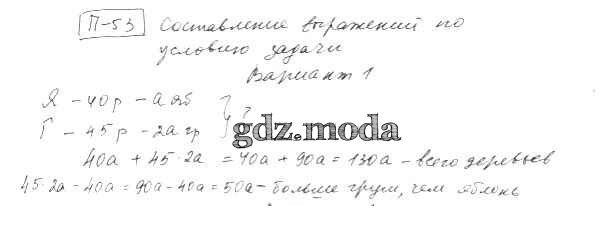 П-53 Составление выражений по
условию задачи
Вариант 1
Я - 40р - а яб } ?
Г - 45р - 2а гр
gdz.moda
40а + 45·2а = 40а + 90а = 130а - всего деревьев
45·2а - 40а = 90а - 40а = 50а - больше груш, чем яблонь